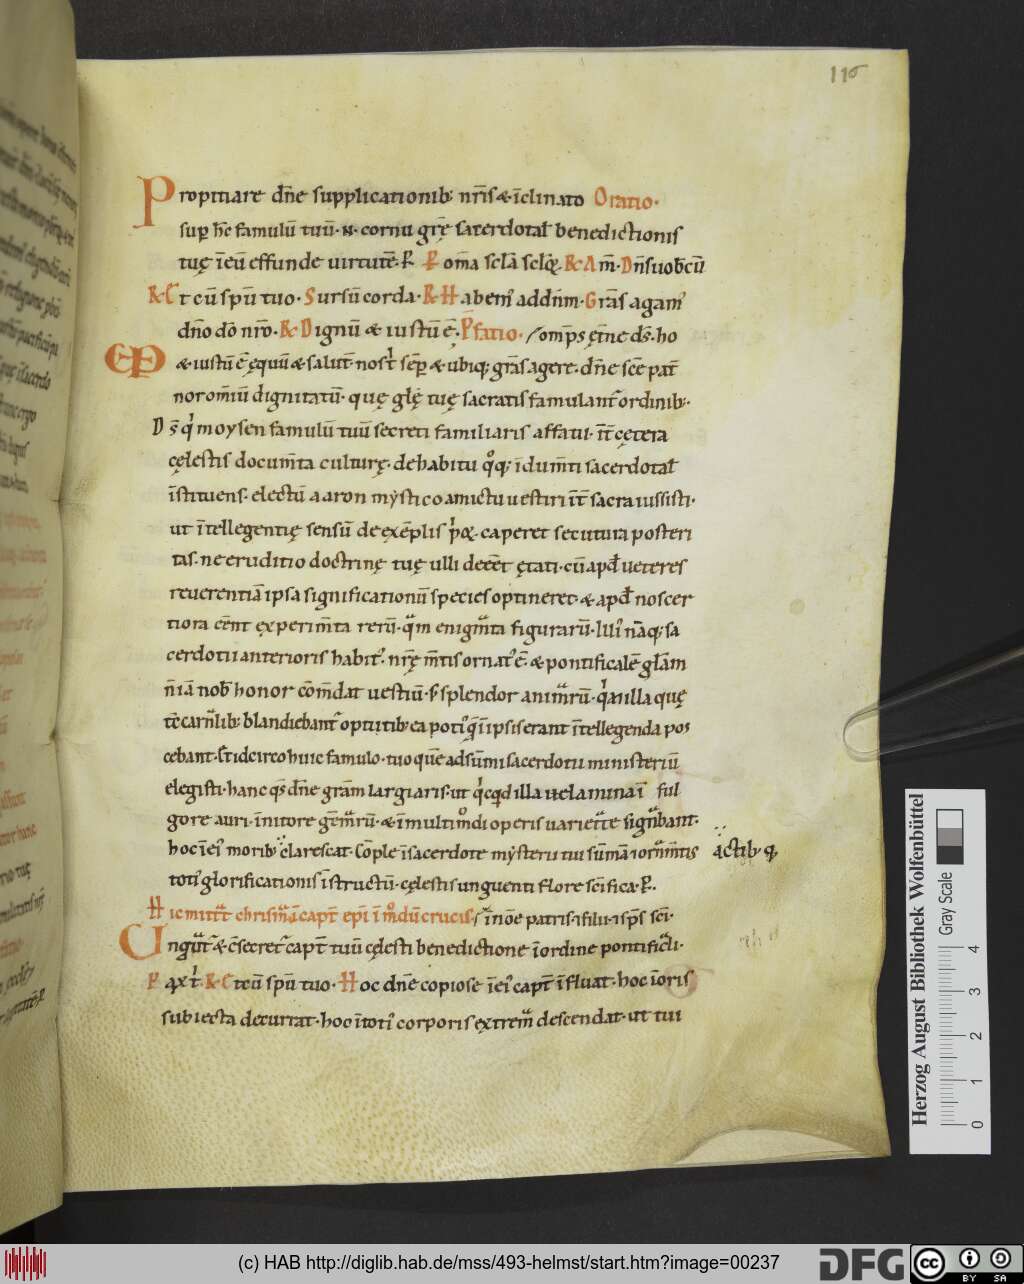 116
Propitiare dn̄e supplicationib; nr̄is & īclinato Oratio·
sup̱ hc̄ famulū tuū·N· cornu grę̄ sacerdotal̄ benedictionis
tuę īeū effunde uirtutē· P̱ P̱ om̄a scl̄a scl̄oꝝ. R· Am̄· Dn̄s uob̄ cū
R· Et cū spū tuo· Sursū corda· R· Habem; ad dn̄m· Gr̄as agam;
dn̄o dō nr̄o· R· Dignū & iustū ē· P̄fatio· om̄ps ęt̄ne ds̄· ho
& iustū ē ęquū & salut̄· nos t sēp̱ & ubiq; gr̄as agere· dn̄e sc̄e pat̄
nor om̄iū dignitatū· quę glę̄ tuę sacratis famulant ordinib;·
Ds̄ q' moysen famulū tuū secreti familiaris affatu· īt cętera
cęlestis docum̄ta culturę· de habitu qoq; īdum̄ti sacerdotal̄
īstituens· electū aaron mystico amictu uestiri īt̄ sacra iussisti·
ut ītellegentię sensū de exēplis p'oꝝ· caperet secutura posteri
tas· ne eruditio doctrinę tuę ulli deeēt ętati· cū apd̄ ueteres
reuerentiā ipsa significationū species optineret· & apd̄ nos cer
tiora cēnt experim̄ta rerū· qm enigmta figurarū· Illi; nāq; sa
cerdotii anterioris habit;· nrę̄ m̄tis ornat; ē· & pontificalē glām
n̄ iā nob̄ honor cōm̄dat uestiū· s; splendor animrū· q'a & illa quę
tc̄ carnlib; blandiebant optutib; ea poti; q̄ ī ipsis erant ītellegenda pos
cebant· Et idcirco huic famulo· tuo quē ad sūmi sacerdotii ministeriū
elegisti· hanc qs̄ dn̄e grām largiaris· ut q'cqd illa uelamina ī ful
gore auri· ī nitore gēmrū· & ī multimdi operis uariette signbant·
hoc ī ei; morib; clarescat· Cōple ī sacerdote mysterii tui sūmā & ornm̄tis
actib; q;
toti; glorificationis īstructū· cęlestis unguenti flore sc̄ifica· P̱·
Hic mittt chrisma ī capt̄ ep̄i ī mdū crucis· ī nōe patris· & filii· & sp̄s sc̄i·
Ungut & cs̄ecret capt̄ tuū cęlesti benedictione ī ordine pontificli·
Pax t· R· Et cū spū tuo· Hoc dn̄e copiose ī ei; capt̄ īfluat· hoc ī oris
subiecta decurrat· hoc ī toti; corporis extrem descendat· ut tui
Herzog August Bibliothek Wolfenbüttel
Gray Scale
0 1 2 3 4
(c) HAB http://diglib.hab.de/mss/493-helmst/start.htm?image=00237
DFG
cc BY SA